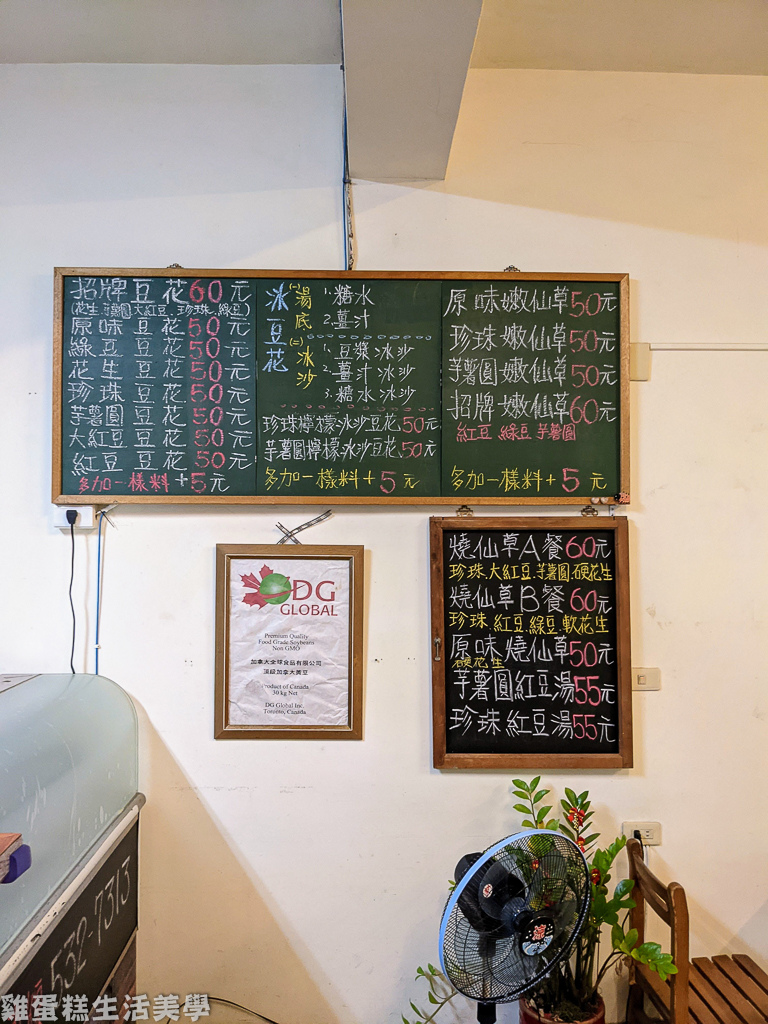 招牌豆花60元
(花生.芋薯圓.大紅豆.珍珠.綠豆)
原味豆花50元
綠豆豆花50元
花生豆花50元
珍珠豆花50元
芋薯圓豆花50元
大紅豆豆花50元
紅豆豆花50元
多加一樣料+5元
冰豆花
(一)湯底
1.糖水
2.薑汁
(二)冰沙
1.豆漿冰沙
2.薑汁冰沙
3.糖水冰沙
珍珠檸檬冰沙豆花50元
芋薯圓檸檬冰沙豆花50元
多加一樣料+5元
原味嫩仙草50元
珍珠嫩仙草50元
芋薯圓嫩仙草50元
招牌嫩仙草60元
紅豆 綠豆 芋薯圓
多加一樣料+5元
燒仙草A餐60元
珍珠.大紅豆.芋薯圓.硬花生
燒仙草B餐60元
珍珠.紅豆.綠豆.軟花生
原味燒仙草50元
硬花生
芋薯圓紅豆湯55元
珍珠紅豆湯55元
DG
GLOBAL
Premium Quality
Food Grade Soybeans
Non GMO
加拿大全球食品有限公司
頂級加拿大黃豆
Product of Canada
30 kg Net
DG Global Inc.
Toronto, Canada
532-7313
雞蛋糕生活美學